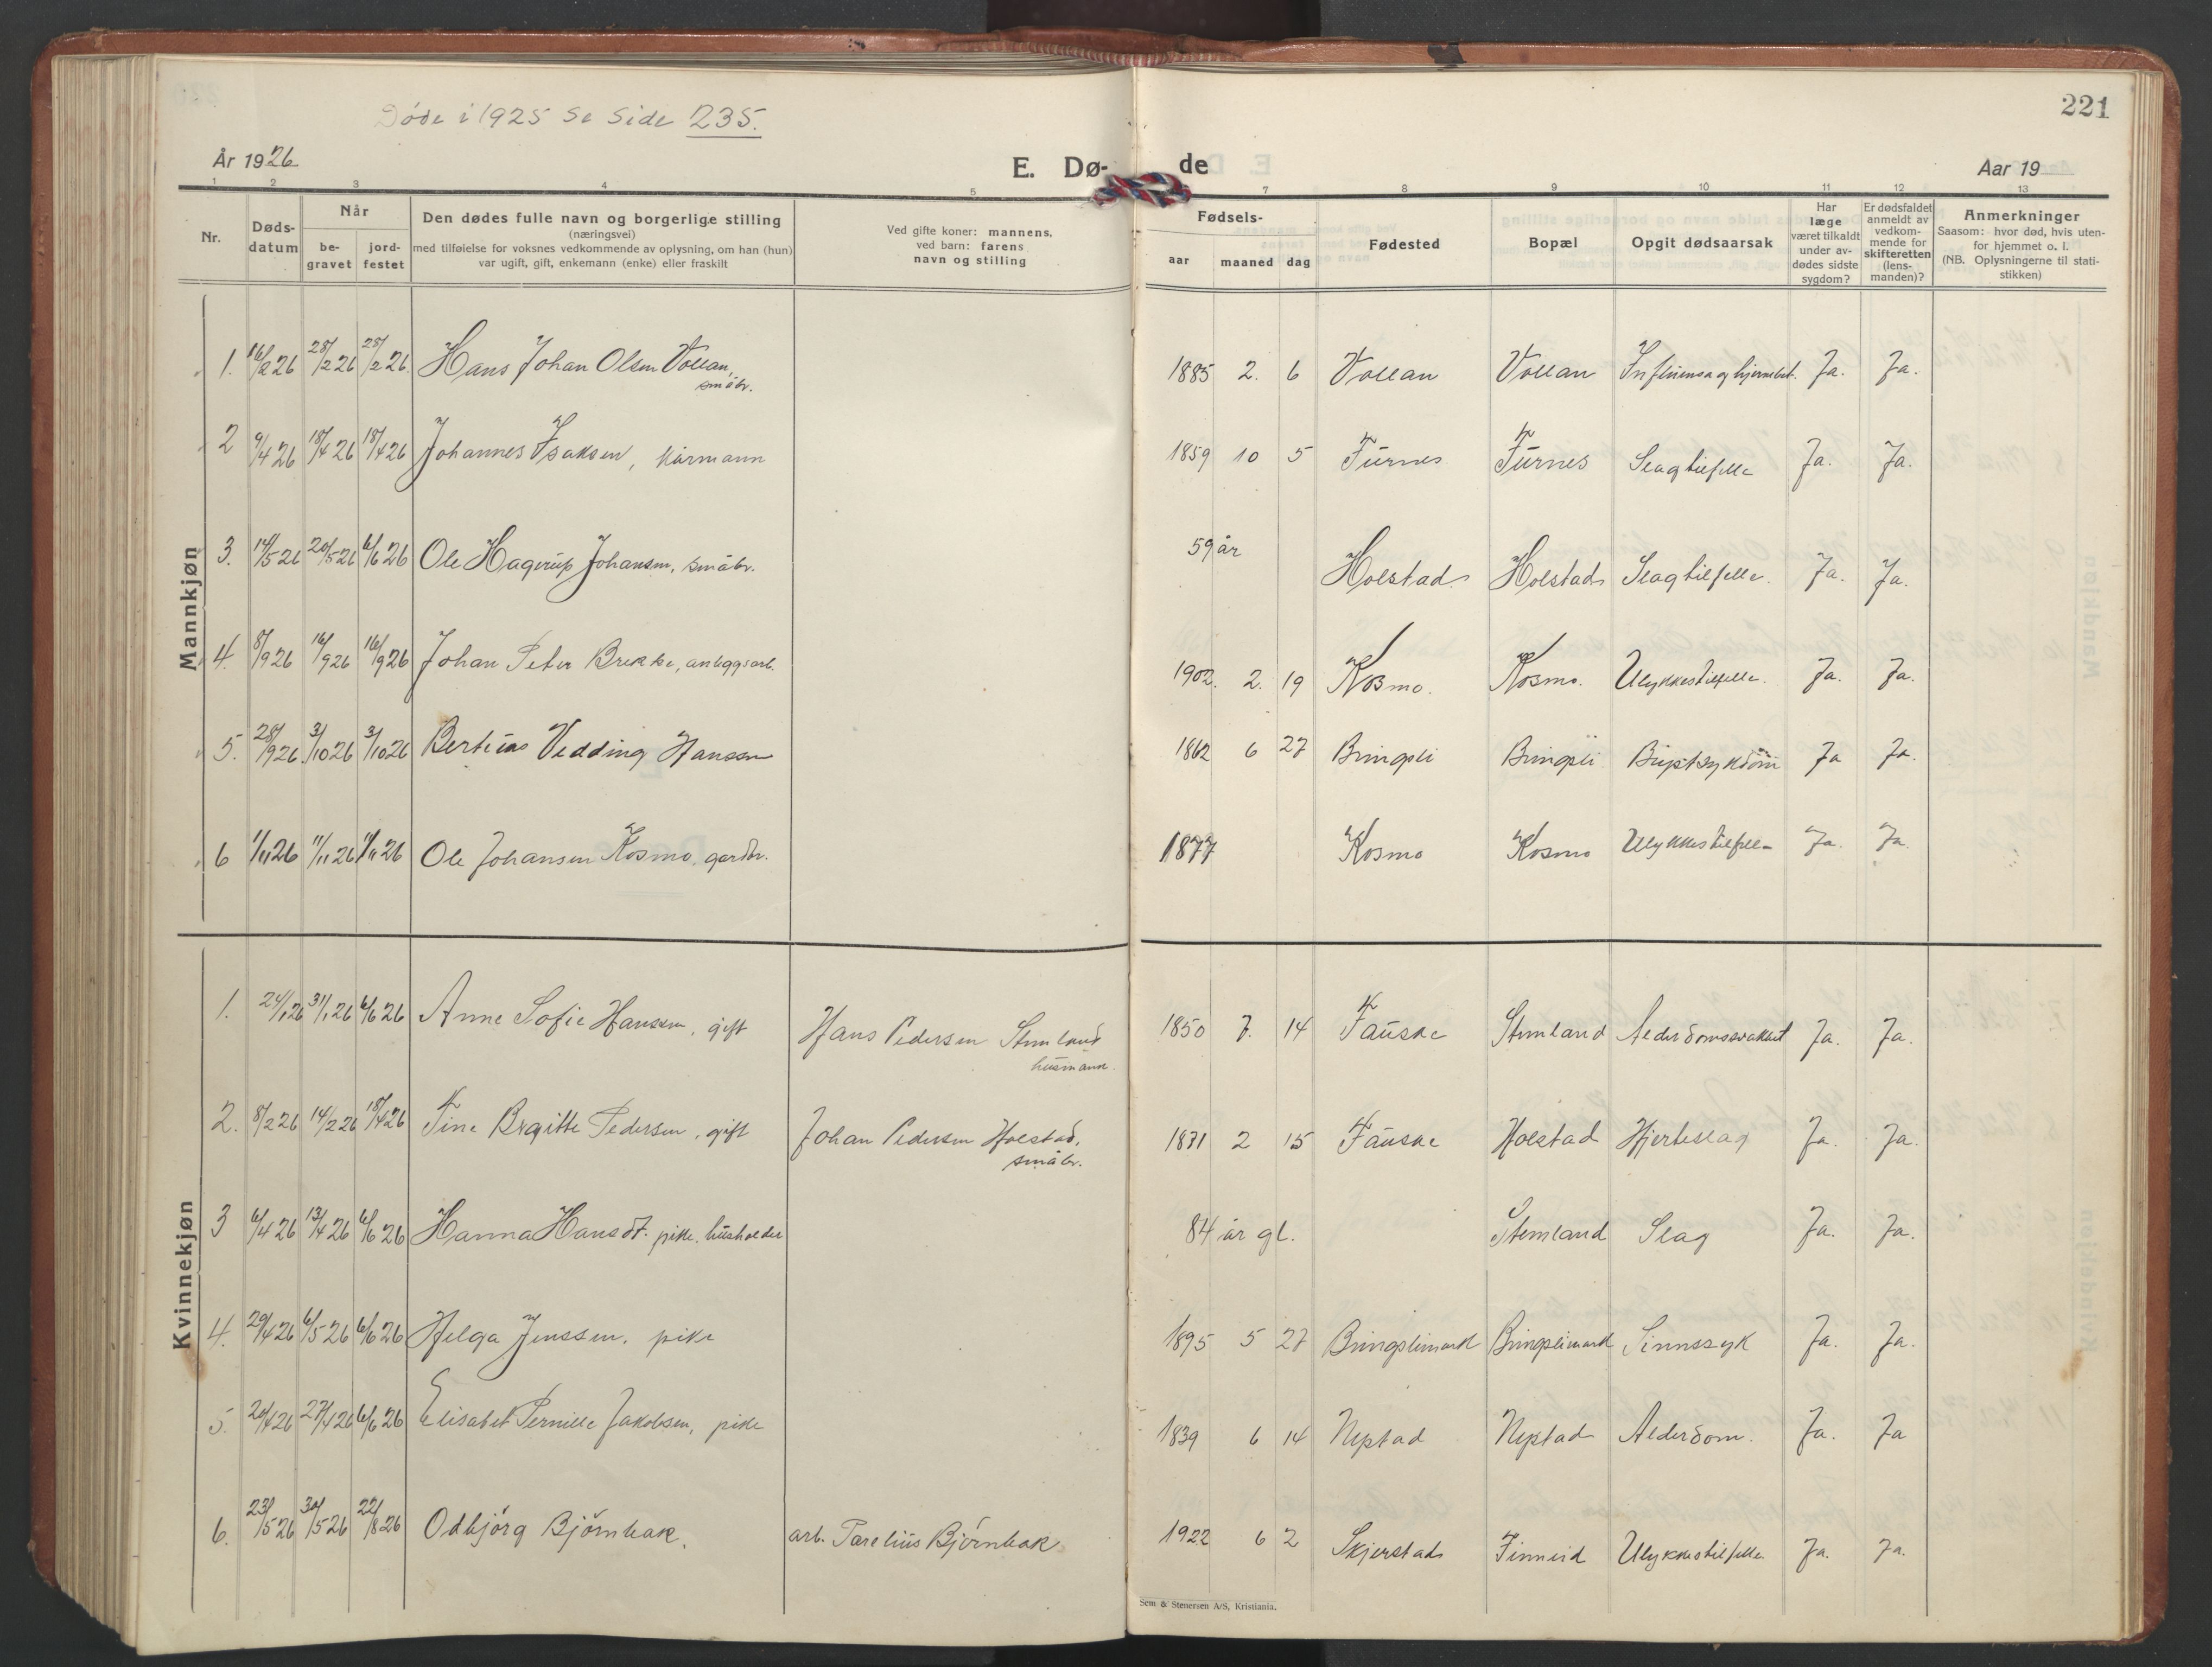 Døde i 1925 se side 235.
221
År 1926
E. Dø-
de
Aar 19
1 2 3 4 5 7 8 9 10 11 12 13
Nr.
Døds-
datum
Når
be-
gravet
jord-
festet
Den dødes fulle navn og borgerlige stilling
(næringsvei)
med tilføielse for voksnes vedkommende av oplysning, om han (hun)
var ugift, gift, enkemann (enke) eller fraskilt
Ved gifte koner: mannens,
ved barn: farens
navn og stilling
Fødsels-
aar maaned dag
Fødested
Bopæl
Opgit dødsaarsak
Har
læge
været tilkaldt
under av-
dødes sidste
sygdom?
Er dødsfaldet
anmeldt av
vedkom-
mende for
skifteretten
(lens-
manden)?
Anmerkninger
Saasom: hvor død, hvis uten-
for hjemmet o. l.
(NB. Oplysningerne til stati-
stikken)
Mannkjøn
1. 16/2 26 28/2 26 28/2 26. Hans Johan Olsen Vollan, 1885 2. 6 Vollan Vollan Influensa og hjernebet. Ja. Ja.
småbr.
2 9/4 26 18/4 26 18/4 26 Johannes Isaksen, kårmann 1859 10 5 Furnes Furnes Slagtilfelle Ja. Ja.
3. 14/5 26 20/5 26 6/6 26 Ole Hagerup Johansen, småbr. 59 år Holstad Holstad Slagtilfelle. Ja. Ja.
4. 8/9 26 16/9 26 16/9 26 Johan Peter Brekke, anleggsarb. 1902. 2. 19 Kosmo. Kosmo. Ulykkestilfelle. Ja. Ja.
5. 28/9 26. 3/10 26 3/10 26 Bertéus Vedding Hansen 1862 6 27 Bringsli Bringsli Brystsykdom Ja Ja.
6 1/11 26 11/11 26 11/11 26 Ole Johansen Kosmo, gardbr. 1877 Kosmo Kosmo Ulykkestilfelle Ja. Ja.
Kvinnekjøn
1. 24/1 26 31/1 26 6/6 26 Anne Sofie Hanssen, gift Hans Pedersen Stemland 1850 7. 14 Fauske Stemland Alderdomssvakhet Ja. Ja.
husmann.
2. 8/2 26 14/2 26 18/4 26 Tine Brgitte Pedersen, gift Johan Pedersen Holstad, 1871 2 15 Fauske Holstad Hjerteslag Ja. Ja.
småbr.
3 6/4 26 13/4 26 6/6 26 Hanna Hansdt. pike. husholder 84 år gl. Stemland Slag Ja. Ja.
4. 29/4 26 6/5 26 6/6 26 Helga Jenssen, pike 1895 5 27 Bringslimark Bringslimark Sinnssyk Ja. Ja.
5. 20/4 26 27/4 26 6/6 26 Elisabet Pernille Jakobsen, pike 1839 6 14 Nystad Nystad Alderdom. Ja. Ja
6. 23/5 26 30/5 26 22/8 26 Odbjørg Bjørnbak. arb. Parelius Bjørnbak 1922 6 2 Skjerstad Finneid Ulykkestilfelle Ja. Ja.
Sem & Stenersen A/S, Kristiania.